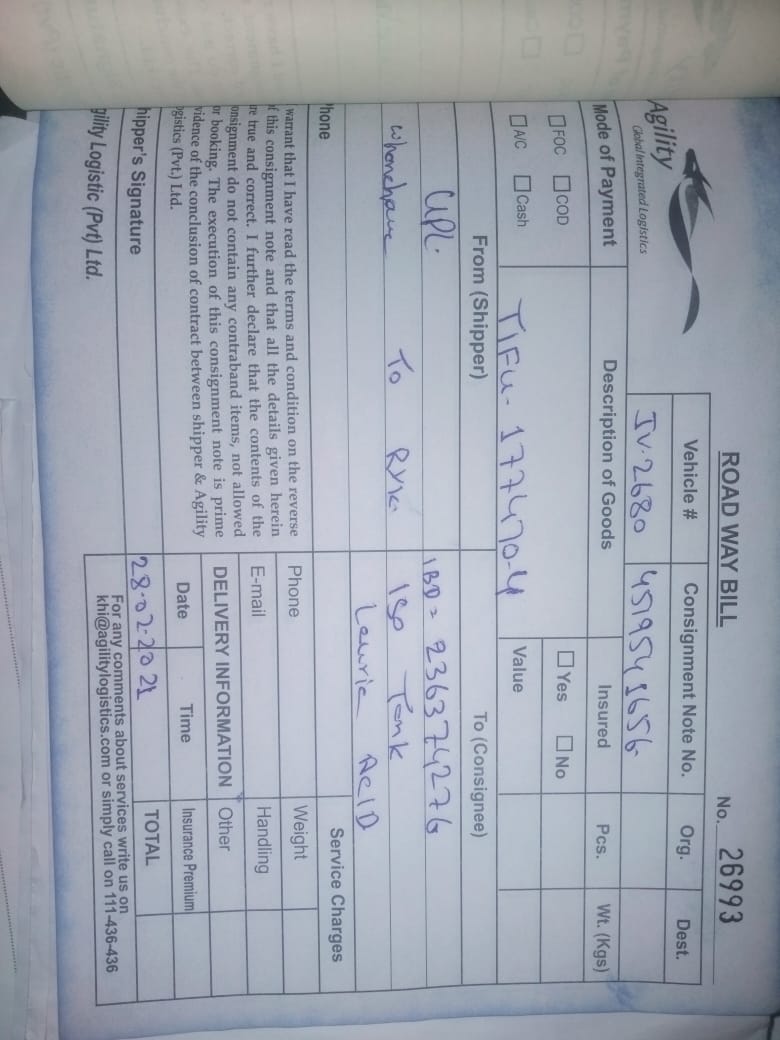 ROAD WAY BILL
No. 26993
Agility
Global Integrated Logistics
Vehicle # Consignment Note No. Org. Dest.
JV-2680 4519541656
Mode of Payment Description of Goods Insured Pcs. Wt. (Kgs)
FOC COD Yes No
A/C Cash TIFU-177470-4 Value
From (Shipper) To (Consignee)
UPL. IBD = 236374276
To RYK. ISO Tank
Lauric ACID
hone Service Charges
warrant that I have read the terms and condition on the reverse
f this consignment note and that all the details given herein
re true and correct. I further declare that the contents of the
onsignment do not contain any contraband items, not allowed
or booking. The execution of this consignment note is prime
vidence of the conclusion of contract between shipper & Agility
gistics (Pvt.) Ltd.
Phone Weight
E-mail Handling
DELIVERY INFORMATION Other
Date Time Insurance Premium
28-02-2021 TOTAL
hipper's Signature
gility Logistic (Pvt) Ltd.
For any comments about services write us on
khi@agilitylogistics.com or simply call on 111-436-436